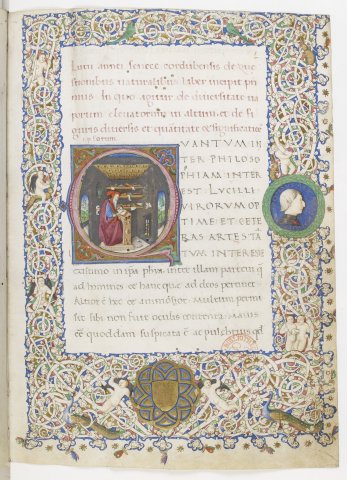 Lutii annei senece cordubensis de que
stionibus naturalibus liber incipit pri
mus In quo agitur de diversitate va
porum elevatorum in altum et de si
gnis diversis et quantitate et significatione
ipsorum
QVANTVM IN
TER PHILOSO
PHIAM INTER
EST LVCILLI
VIRORVM OP
TIME ET CETE
RAS ARTES TA
TVM INTERESSE
existimo in ipsa phya inter illam partem q
ad homines et hanc que ad deos pertinet
Altior ē hec et animosior Multum permi
sit sibi non fuit oculis contenta Maius
eē quoddam suspicata ē ac pulchrius qd